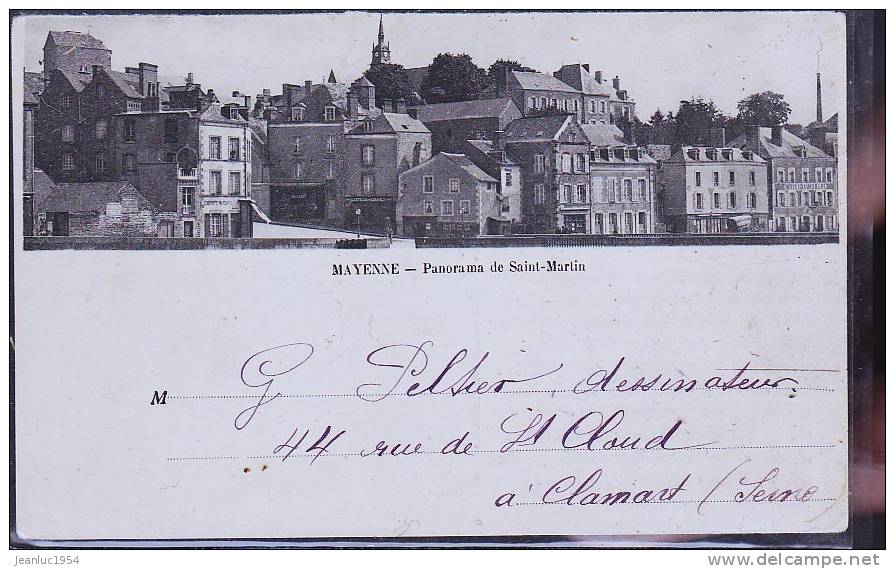 MAYENNE — Panorama de Saint-Martin
M G. Peltier dessinateur
44 rue de St Cloud
à Clamart (Seine)
jeanluc1954
www.delcampe.net